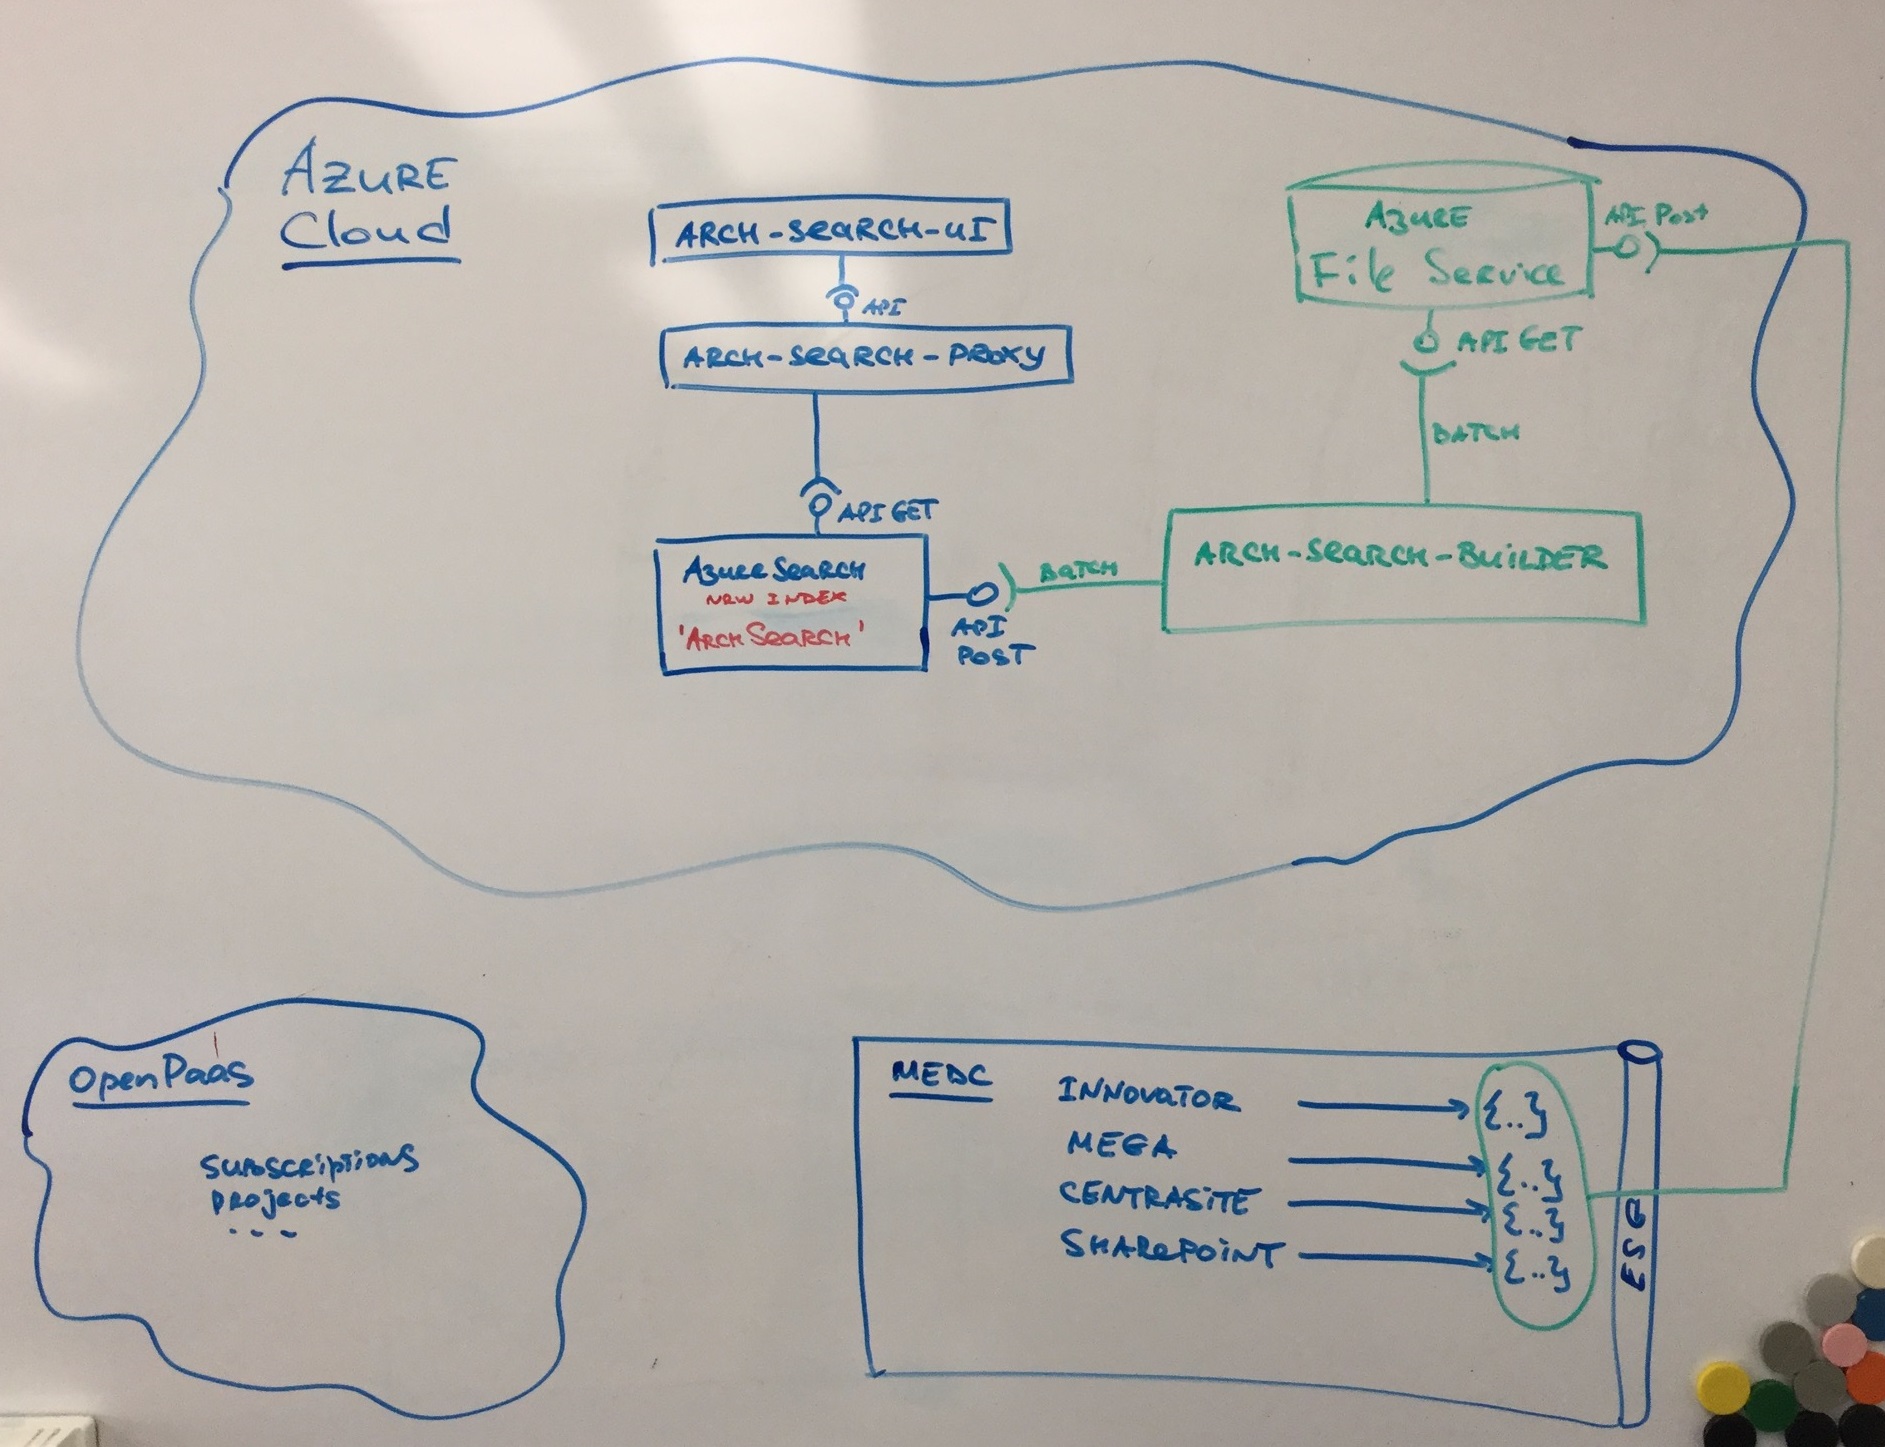 AZURE
Cloud
ARCH-SEARCH-UI
API
ARCH-SEARCH-PROXY
API GET
AzureSEARCH
NEW INDEX
'ARCHSEARCH'
API
POST
BATCH
ARCH-SEARCH-BUILDER
BATCH
API GET
AZURE
File Service
API Post
OpenPaas
SUBSCRIPTIONS
PROJECTS
...
MEDC
INNOVATOR
{..}
MEGA
{..}
CENTRASITE
{..}
SHAREPOINT
{..}
ESG